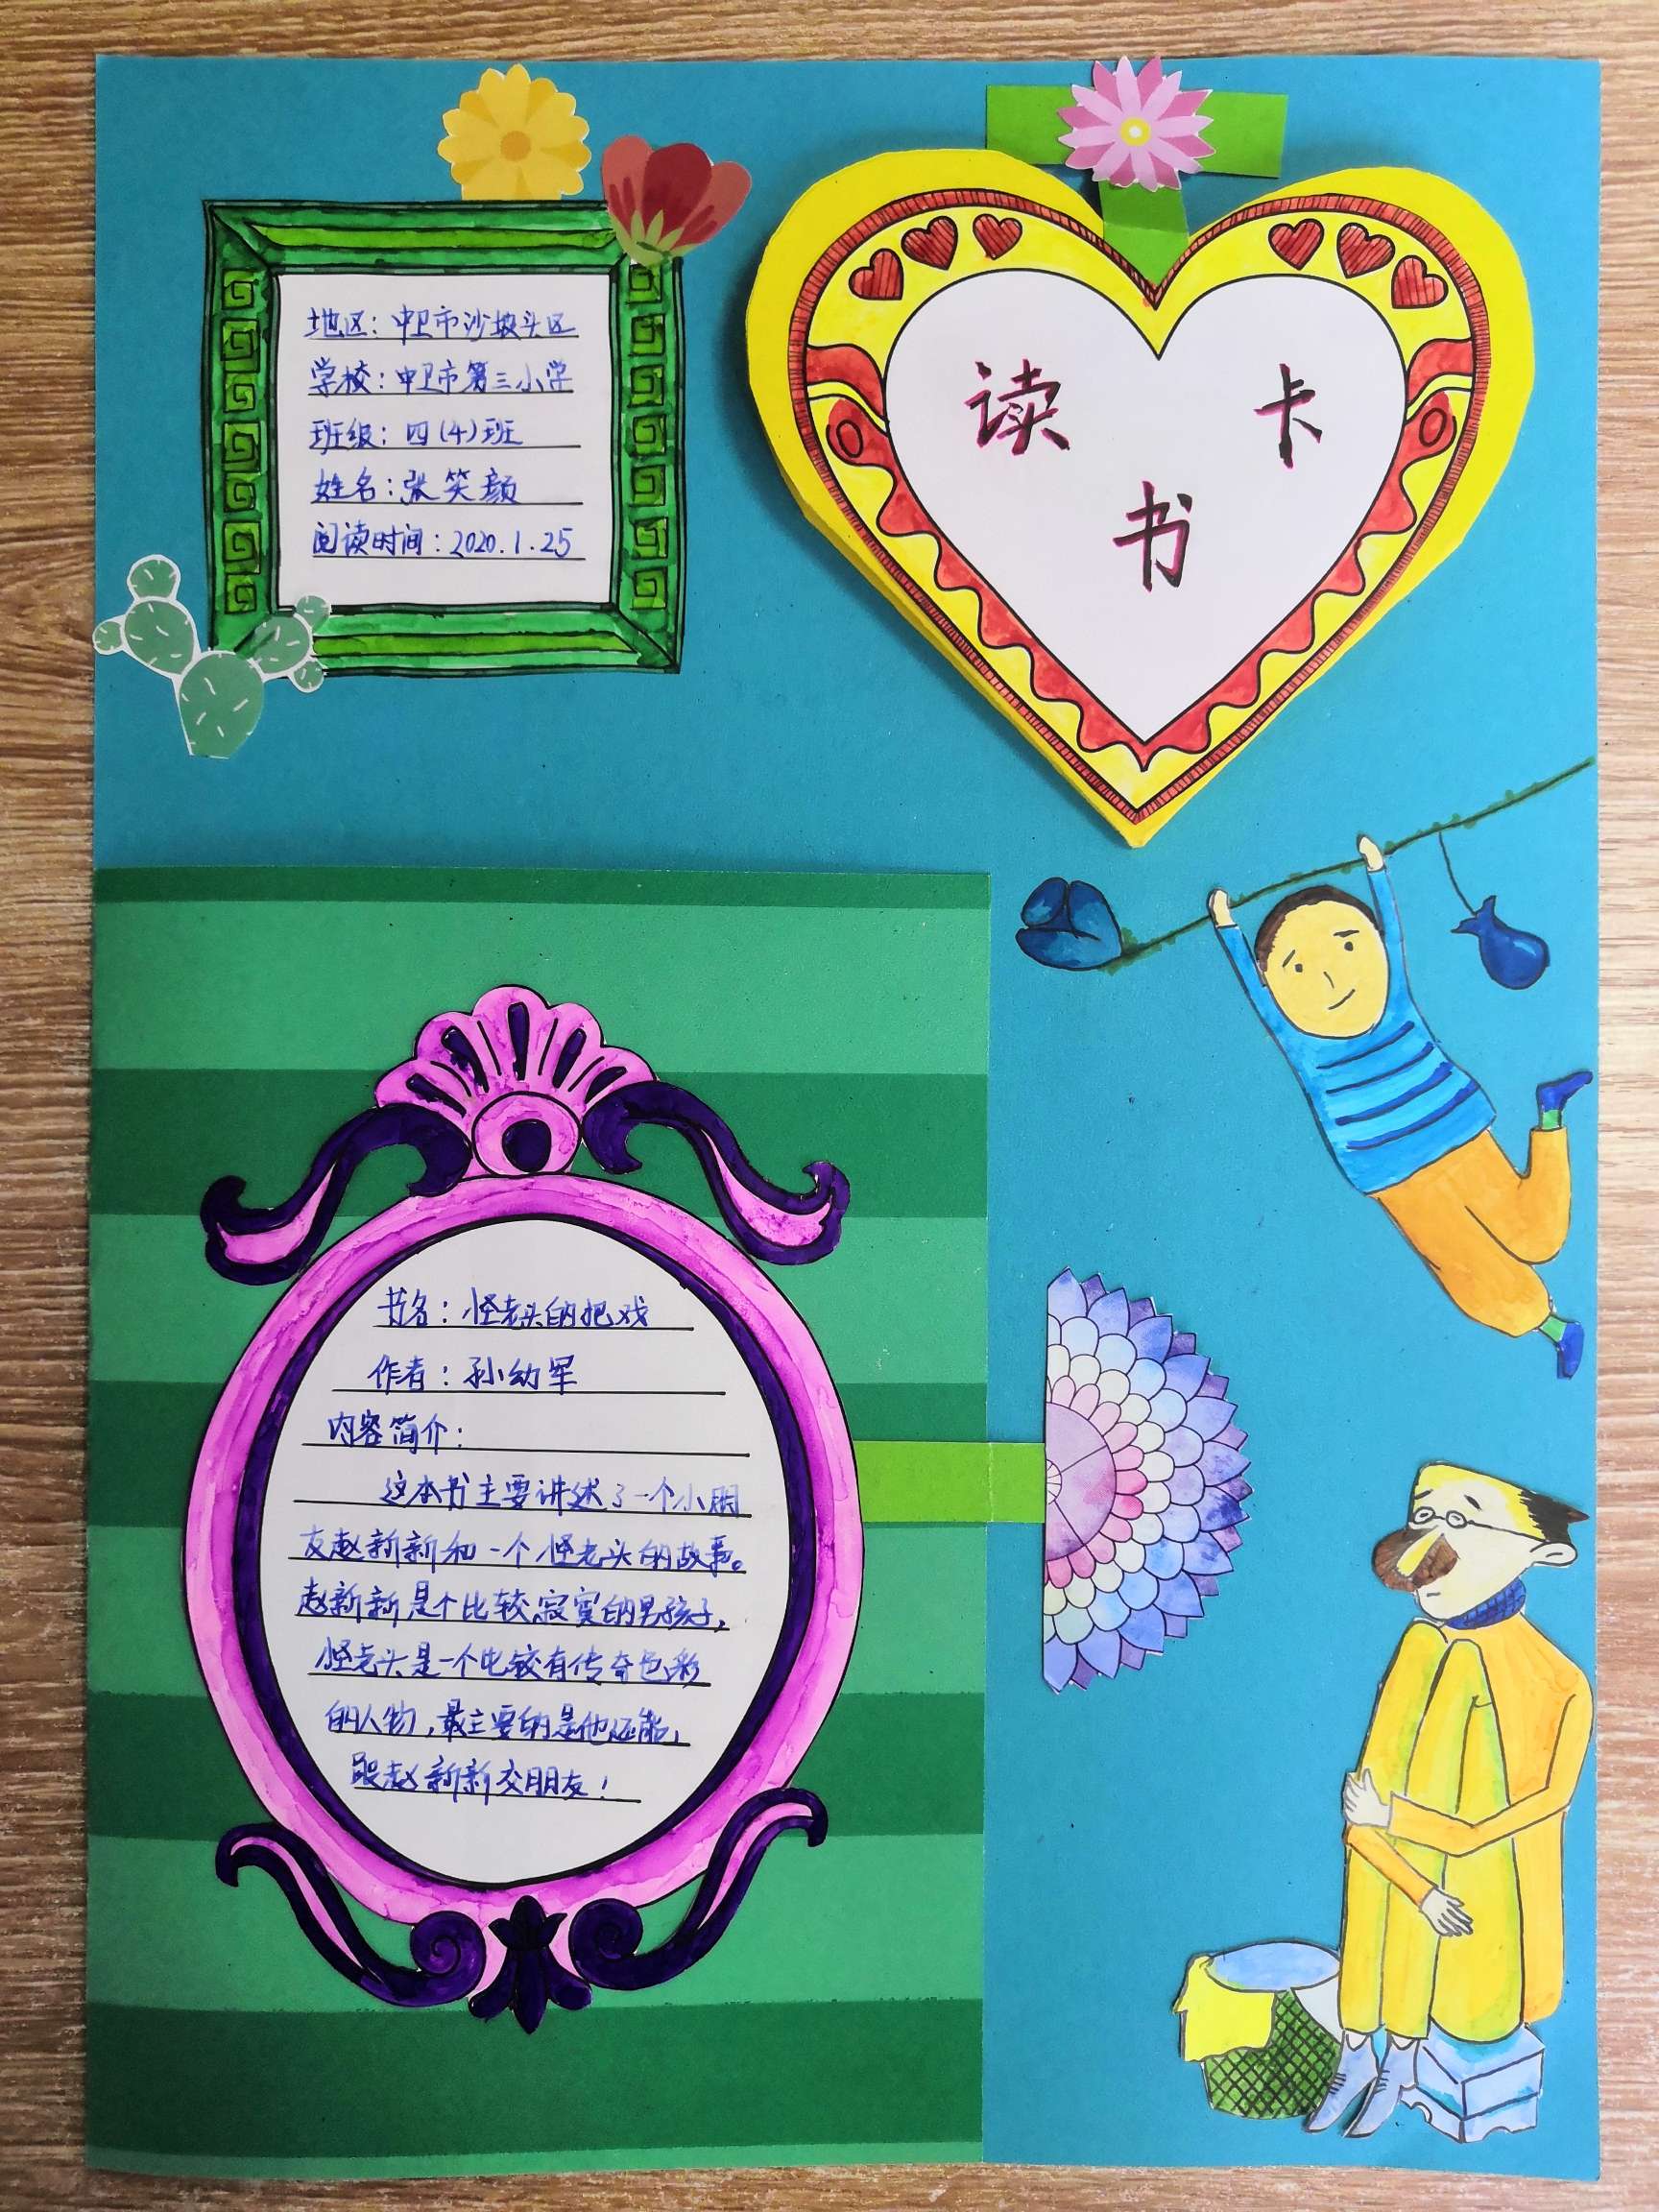 地区：中卫市沙坡头区
学校：中卫市第三小学
班级：四(4)班
姓名：张笑颜
阅读时间：2020.1.25
读书卡
书名：怪老头的把戏
作者：孙幼军
内容简介：
这本书主要讲述了一个小朋
友赵新新和一个怪老头的故事。
赵新新是个比较寂寞的男孩子，
怪老头是一个比较有传奇色彩
的人物，最主要的是他还能，
跟赵新新交朋友！